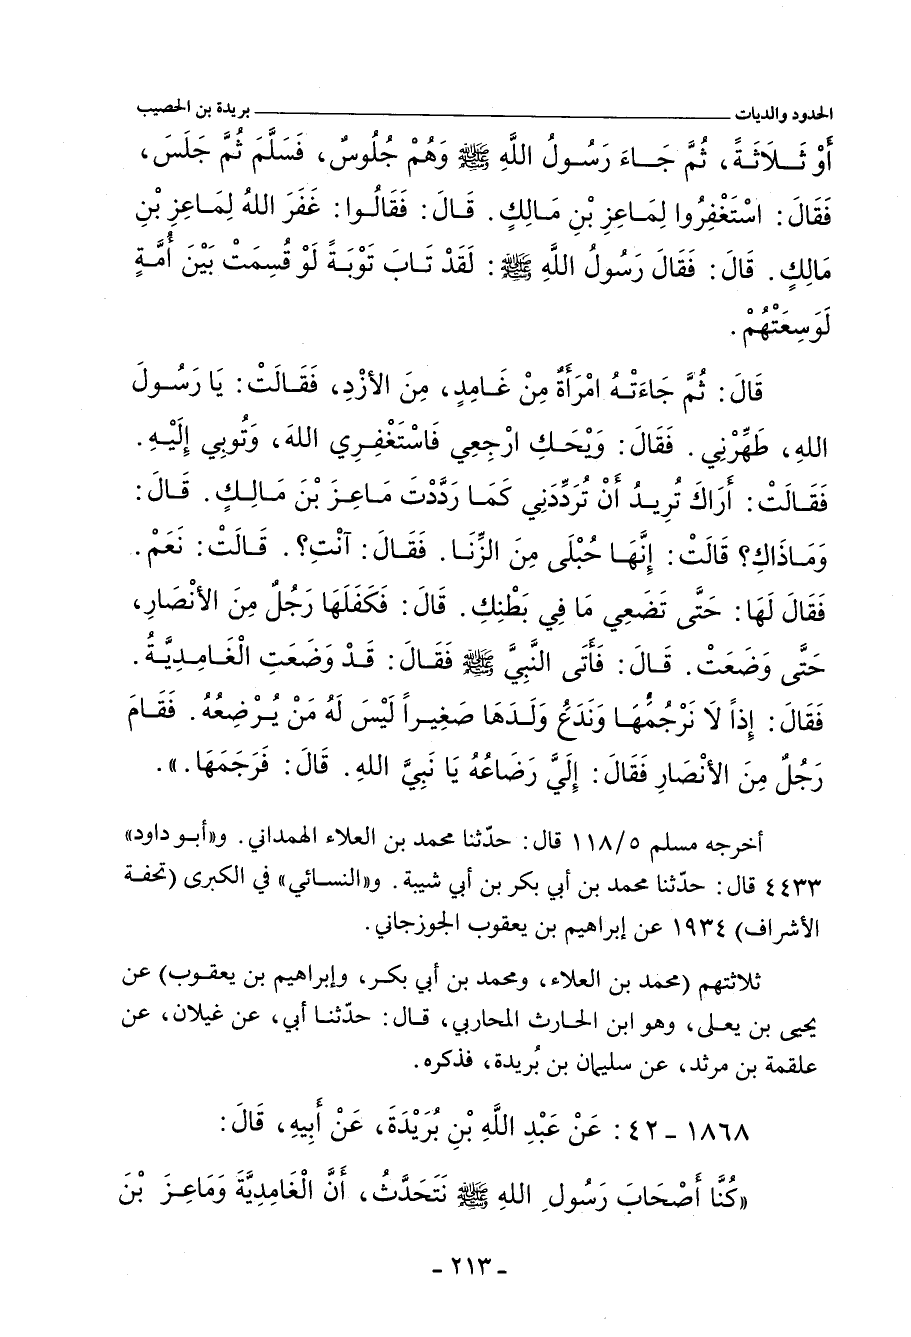 الحدود والديات ــــــــــــــــــــ بريدة بن الحصيب
أَوْ ثَـلَاثَةً، ثُمَّ جَـاءَ رَسُولُ اللَّهِ ﷺ وَهُمْ جُلُوسٌ، فَسَلَّمَ ثُمَّ جَلَسَ،
فَقَالَ: اسْتَغْفِرُوا لِمَاعِزِ بْنِ مَالِكٍ. قَالَ: فَقَالُوا: غَفَرَ اللهُ لِمَاعِزِ بْنِ
مَالِكٍ. قَالَ: فَقَالَ رَسُولُ اللَّهِ ﷺ: لَقَدْ تَابَ تَوْبَةً لَوْ قُسِمَتْ بَيْنَ أُمَّةٍ
لَوَسِعَتْهُمْ.
قَالَ: ثُمَّ جَاءَتْهُ امْرَأَةٌ مِنْ غَامِدٍ، مِنَ الأَزْدِ، فَقَالَتْ: يَا رَسُولَ
اللهِ، طَهِّرْنِي. فَقَالَ: وَيْحَكِ ارْجِعِي فَاسْتَغْفِرِي اللهَ، وَتُوبِي إِلَيْهِ.
فَقَالَتْ: أَرَاكَ تُرِيدُ أَنْ تُرَدِّدَنِي كَمَا رَدَّدْتَ مَاعِزَ بْنَ مَالِكٍ. قَالَ:
وَمَاذَاكِ؟ قَالَتْ: إِنَّهَا حُبْلَى مِنَ الزِّنَا. فَقَالَ: آنْتِ؟. قَالَتْ: نَعَمْ.
فَقَالَ لَهَا: حَتَّى تَضَعِي مَا فِي بَطْنِكِ. قَالَ: فَكَفَلَهَا رَجُلٌ مِنَ الأَنْصَارِ،
حَتَّى وَضَعَتْ. قَالَ: فَأَتَى النَّبِيَّ ﷺ فَقَالَ: قَدْ وَضَعَتِ الْغَامِدِيَّةُ.
فَقَالَ: إِذاً لَا نَرْجُمُهَا وَنَدَعُ وَلَدَهَا صَغِيراً لَيْسَ لَهُ مَنْ يُرْضِعُهُ. فَقَامَ
رَجُلٌ مِنَ الأَنْصَارِ فَقَالَ: إِلَيَّ رَضَاعُهُ يَا نَبِيَّ اللهِ. قَالَ: فَرَجَمَهَا.».
أخرجه مسلم ١١٨/٥ قال: حدّثنا محمد بن العلاء الهمداني. و«أبو داود»
٤٤٣٣ قال: حدّثنا محمد بن أبي بكر بن أبي شيبة. و«النسائي» في الكبرى (تحفة
الأشراف) ١٩٣٤ عن إبراهيم بن يعقوب الجوزجاني.
ثلاثتهم (محمد بن العلاء، ومحمد بن أبي بكر، وإبراهيم بن يعقوب) عن
يحيى بن يعلى، وهو ابن الحارث المحاربي، قال: حدّثنا أبي، عن غيلان، عن
علقمة بن مرثد، عن سليمان بن بُريدة، فذكره.
١٨٦٨ - ٤٢: عَنْ عَبْدِ اللَّهِ بْنِ بُرَيْدَةَ، عَنْ أَبِيهِ، قَالَ:
«كُنَّا أَصْحَابَ رَسُولِ اللهِ ﷺ نَتَحَدَّثُ، أَنَّ الْغَامِدِيَّةَ وَمَاعِزَ بْنَ
- ٢١٣ -